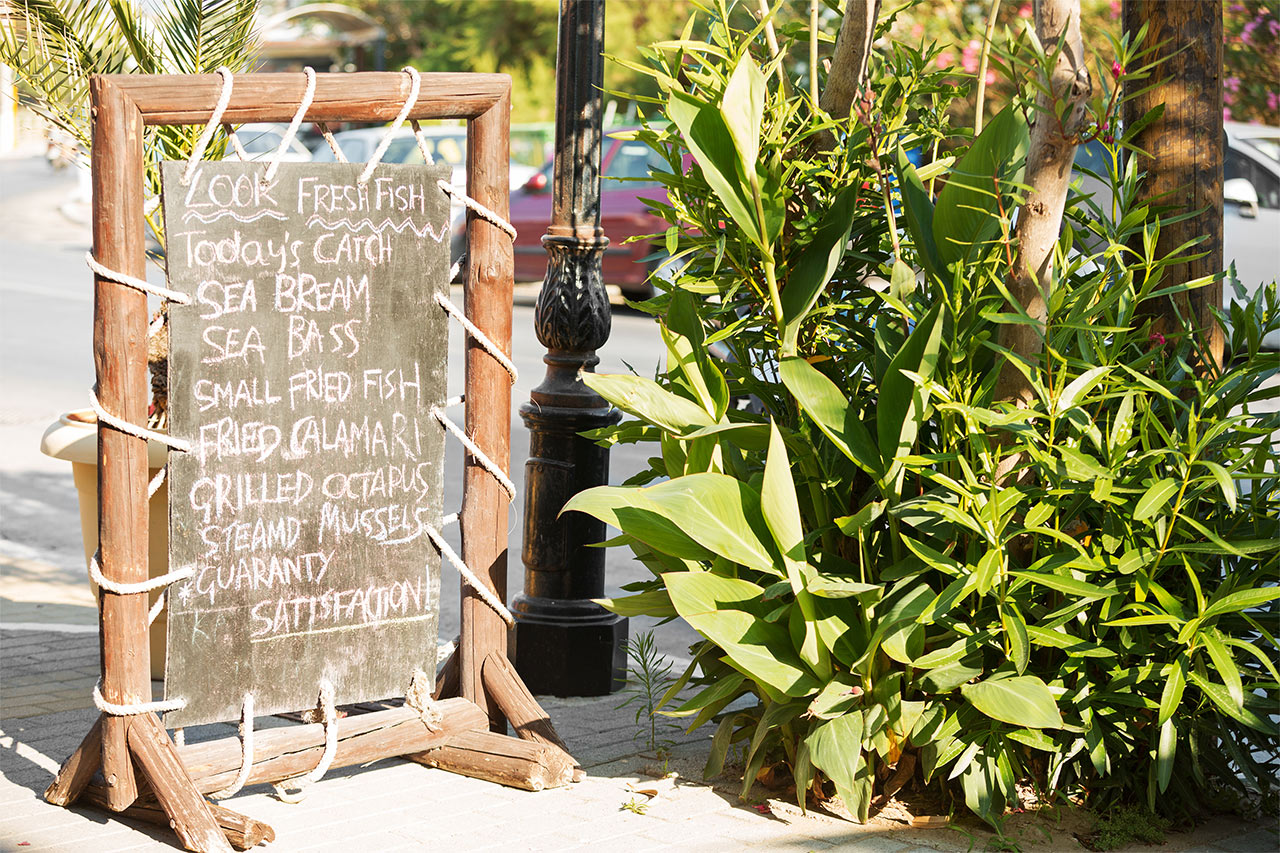 LOOK FRESH FISH
Today's CATCH
SEA BREAM
SEA BASS
SMALL FRIED FISH
FRIED CALAMARI
GRILLED OCTAPUS
STEAMD MUSSELS
*GUARANTY
SATISFACTION!